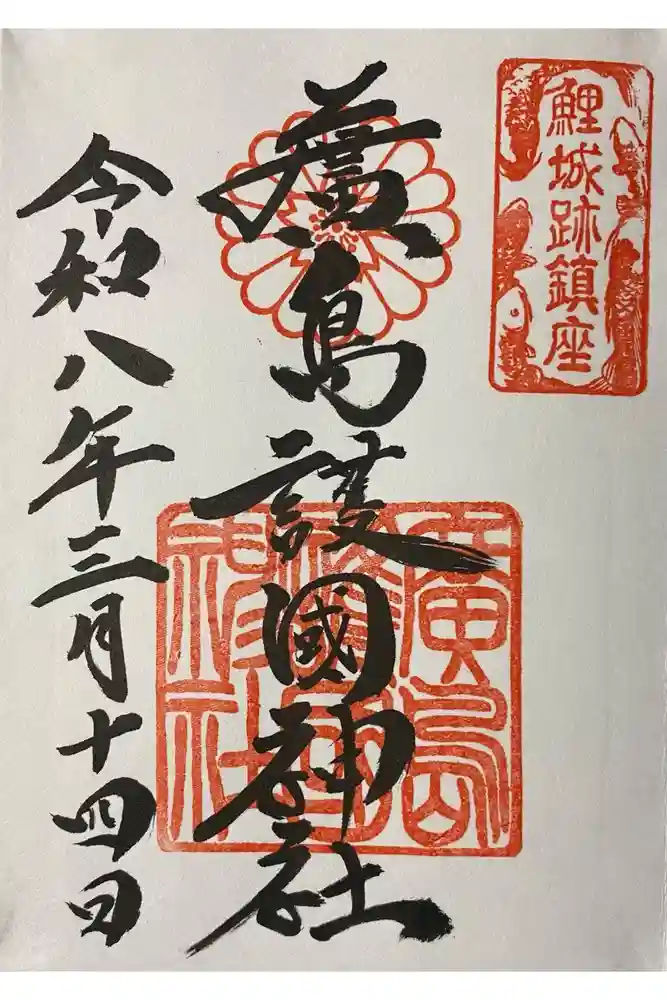 鯉城跡鎮座
廣島護國神社
廣島護國神社
令和八年三月十四日